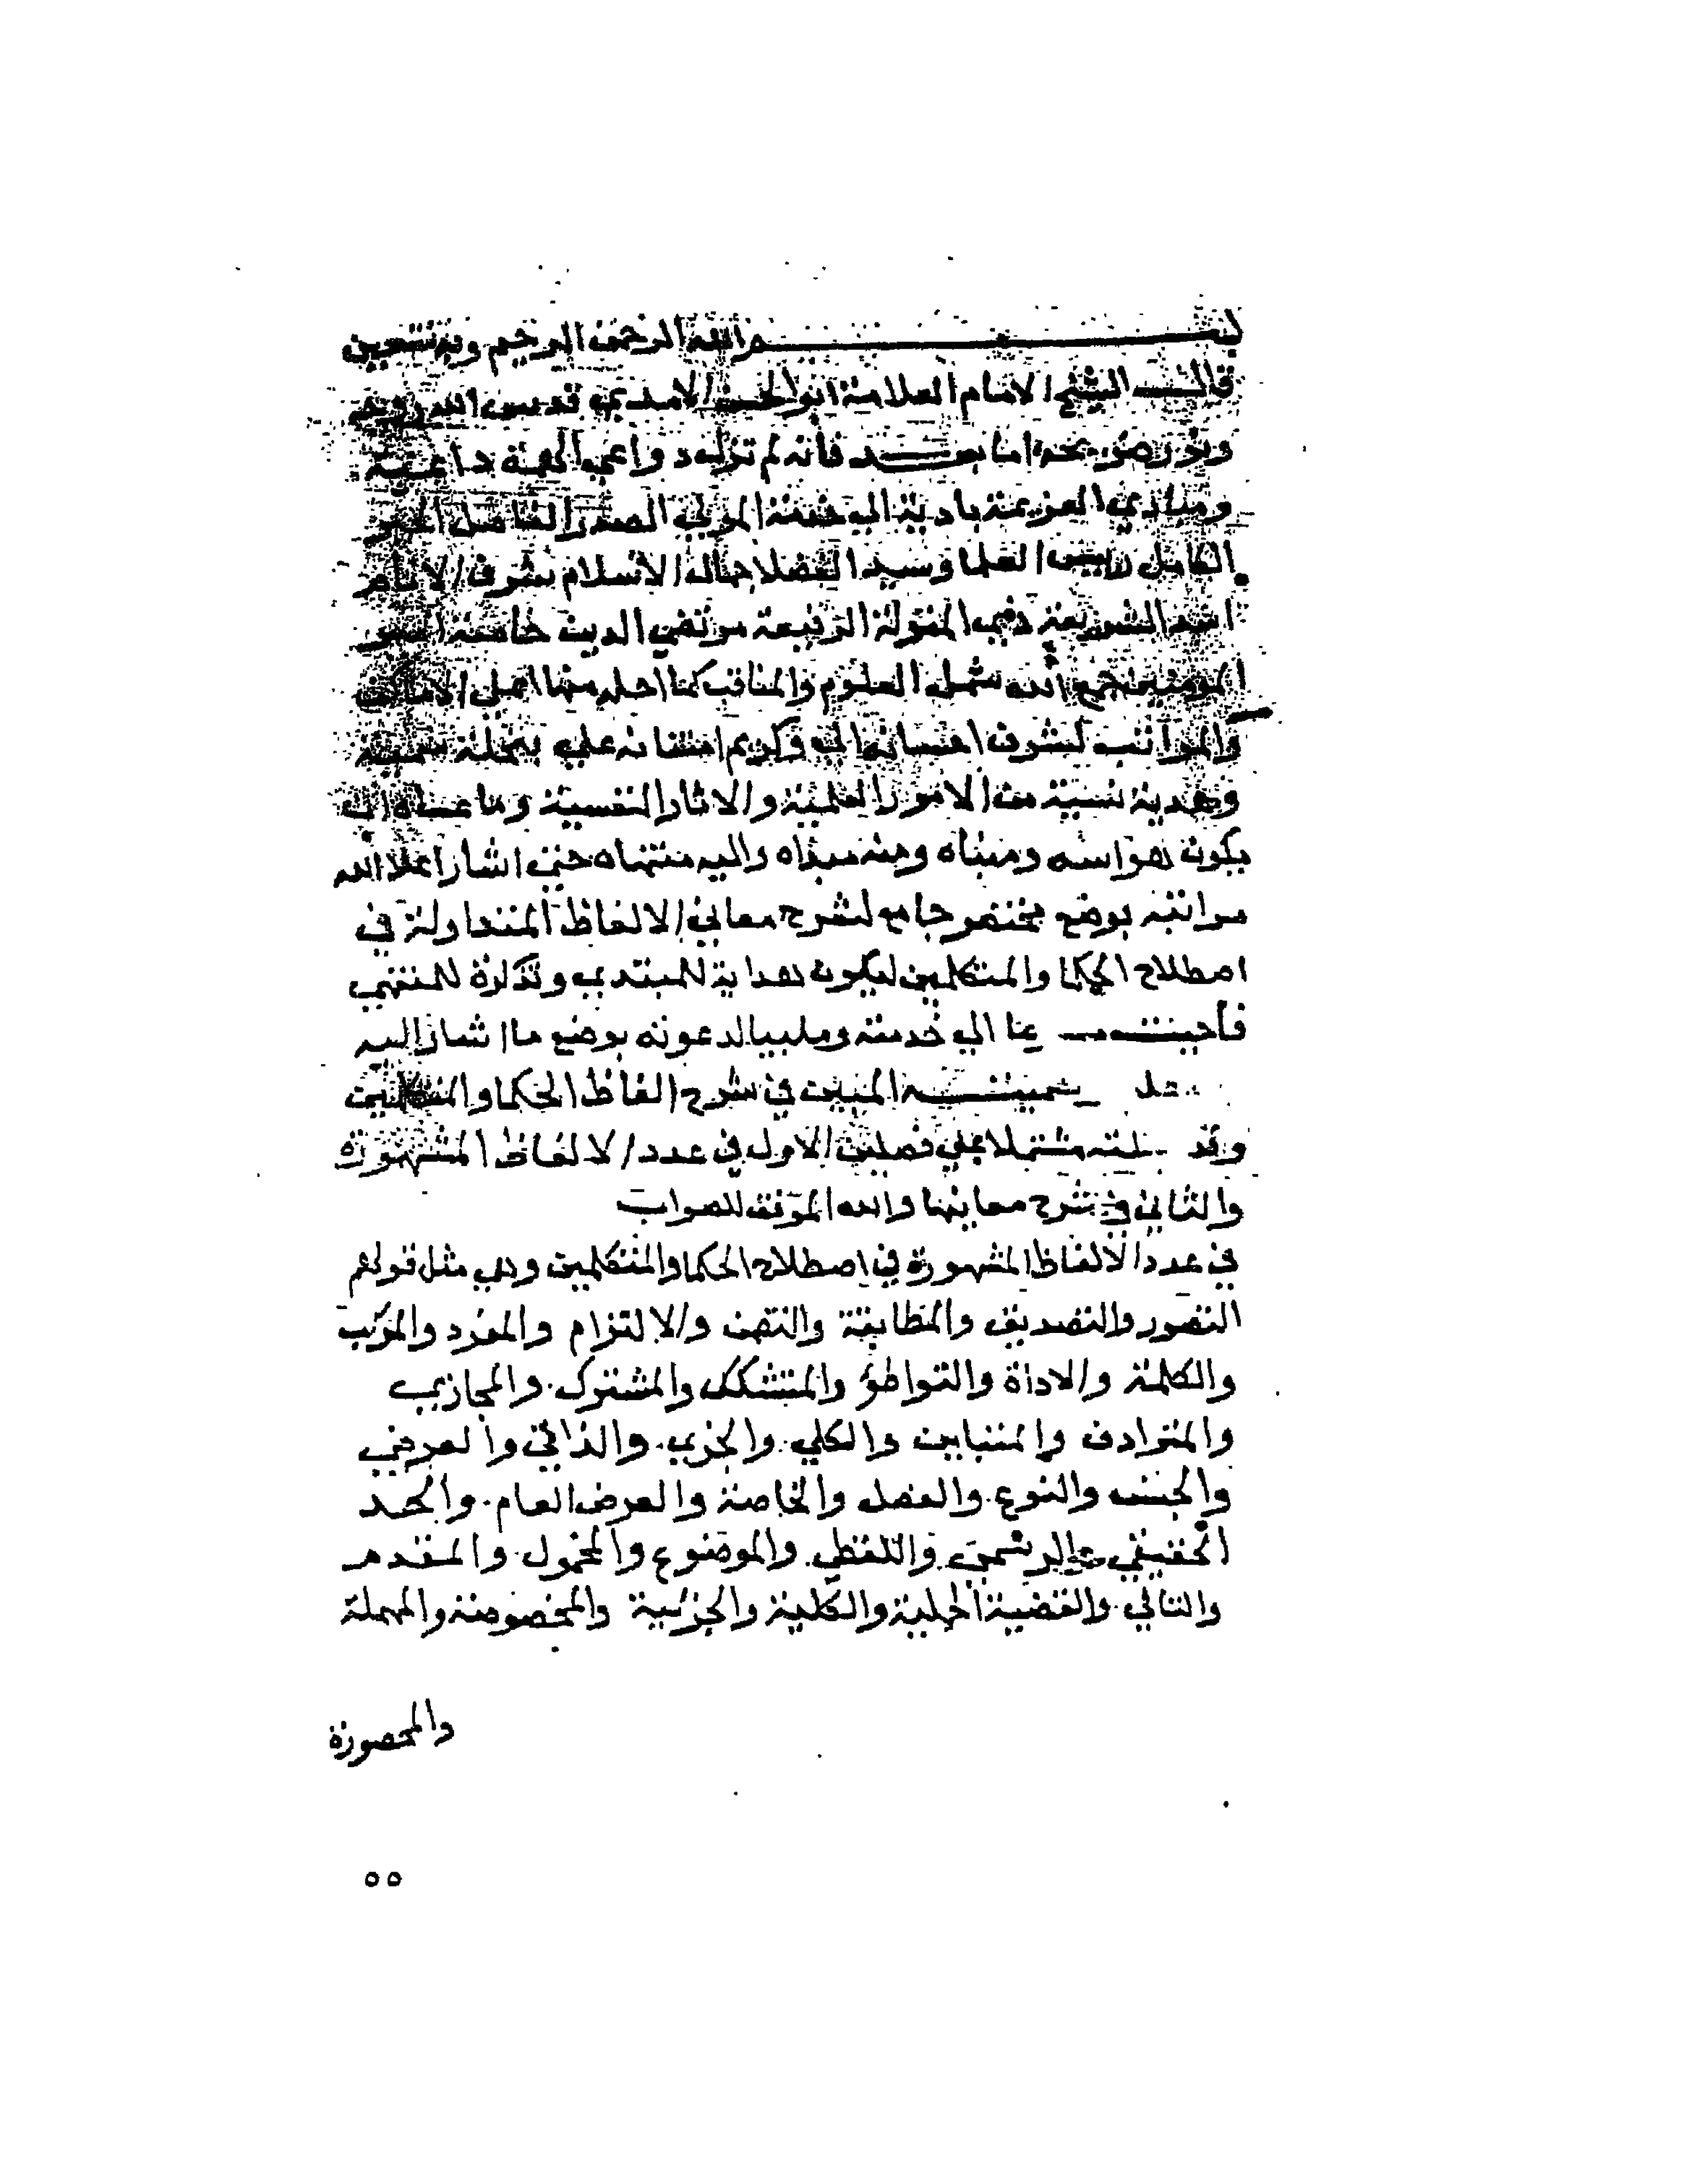 بسم الله الرحمن الرحيم وبه نستعين
قال الشيخ الامام العلامة ابو الحسن الامدي قدس الله روحه
ونور ضريحه اما بعد فانه لم تزل دواعي الهمة داعية
ومنادي العزيمة بادية الي خدمة المولي الصدر الفاضل الحبر
الكامل رييس العلما وسيد الفضلا جمال الاسلام شرف الانام
الشريعة المنزلة الرفيعة مرتضي الدين خاصة امير
المومنين جمع الله شمل العلوم والمناقب كما احله منها اعلي
والمراتب لشرف احسانه الي وكريم امتنانه علي بنحلة سمية
وهدية سنية من الامور العلمية والاثار النفسية وما عساه ان
يكون هو اسه ومبناه ومنه مبداه واليه منتهاه حتي اشار اعلا الله
مراتبه بوضع مختصر جامع لشرح معاني الالفاظ المتداولة في
اصطلاح الحكما والمتكلمين ليكون هداية للمبتدي وتذكرة للمنتهي
الي خدمته وملبيا لدعوته بوضع ما اشار اليه
المبين في شرح الفاظ الحكما والمتكلمين
وقد مشتملا علي فصلين الاول في عدد الالفاظ المشهورة
والثاني في شرح معانيها والله الموفق للصواب
في عدد الالفاظ المشهورة في اصطلاح الحكما والمتكلمين وهي مثل قولهم
التصور والتصديق والمطابقة والتضمن والالتزام والمفرد والمركب
والكلمة والاداة والتواطؤ والمتشكك والمشترك والمجازي
والمترادف والمتباين والكلي والجزي والذاتي والعرضي
والجنس والنوع والفصل والخاصة والعرض العام والحد
الحقيقي والرسمي واللفظي والموضوع والمحمول والمقدم
والتالي والقضية الحملية والكلية والجزئية والمخصوصة والمهملة
والمحصورة
٥٥